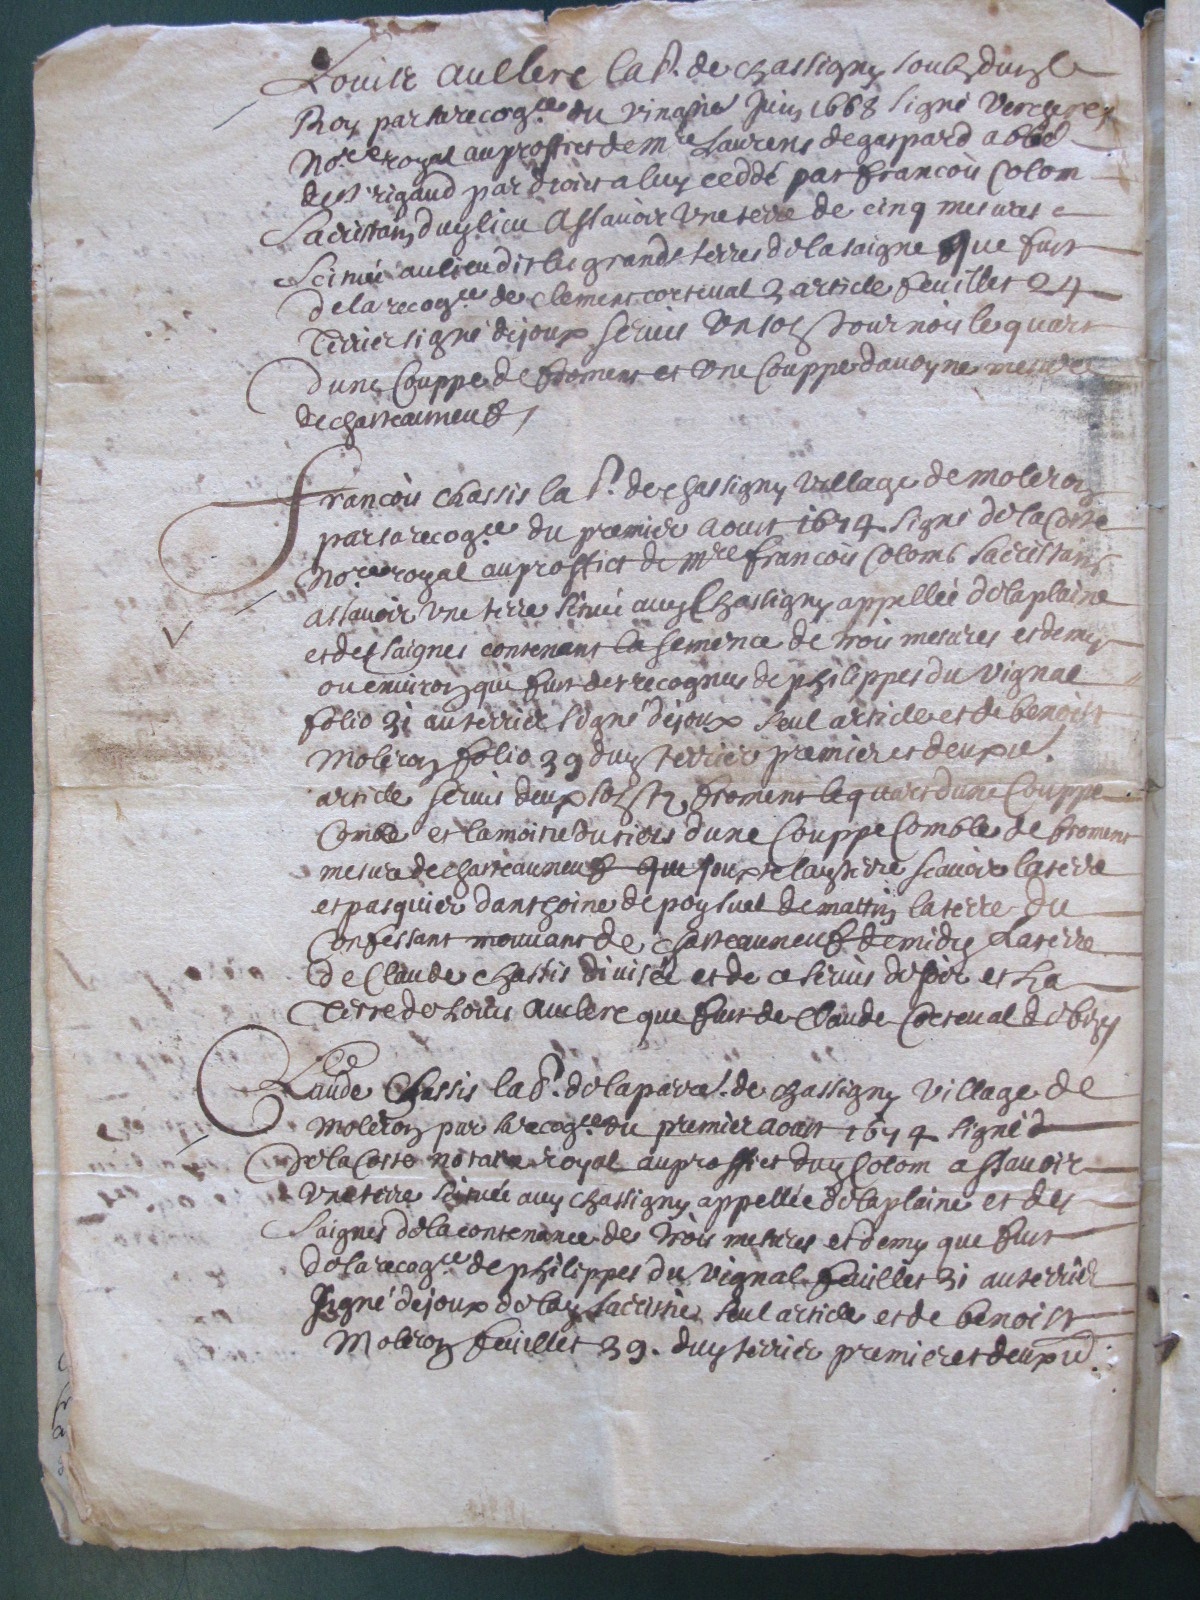 Louise aucllere lab.r de chassigny
Roy par sa recog.ce du vingne Juin 1668 signé
No.re royal au proffict de m.re Laurens de gaspard abbé
de s.t rigaud par droict a luy ceddé par francois Colom
Sacristain dudit lieu Assavoir Une terre de cinq mesures
Scituée au lieu dit les grands terres de la saigne que fust
de la recog.ce de clement corseval 3 article feuillet 24
Terrier signé dejoux servis Un sol tournois le quart
dune Couppe de froment et Une Couppe davoyne mesure
de chasteauneuf
francois chassis lab.r de chassigny village de moleron
par sa recog.ce du premier aoust 1674 signé de la Coste
No.re royal au proffict de m.re francois Colomb sacristain
assavoir Une terre situeé aud Chassigny appellée de la plaine
et des saignes contenant la semence de trois mesures et demy
ou environ que fust des recognus de philippes du vignal
folio 31 au terrier signé dejoux seul article et de benoist
Moleron folio 39 dud terrier premier et deuxie.
article servis deux solz tz froment le quart dune Couppe
Comble et la moitie du tiers dune Couppe Comble de froment
mesure de chasteauneuf que jouxte lad terre scavoir la terre
et pasquier danthoine de poy de mattin la terre du
Confessant mouvant de chasteauneuf de midy La terre
de Claude chassis divisée et de ce servis de soir et La
Terre de Louis Auclere que fust de Claude Corseval de bize
Claude Chassis lab.r de la par.se de chassigny village de
Moleron par sa recog.ce du premier aoust 1674 signé
De la Coste notaire royal au proffict dud Colom assavoir
Une terre scituée aud chassigny appellée de la plaine et des
Saignes de la contenance de trois mesures et demy que fust
de la recog.ce de philippes du vignal feuillet 31 au terrier
signé dejoux de lad sacristie seul article et de benoist
Moleron feuillet 39. dud terrier premier et deuxie.